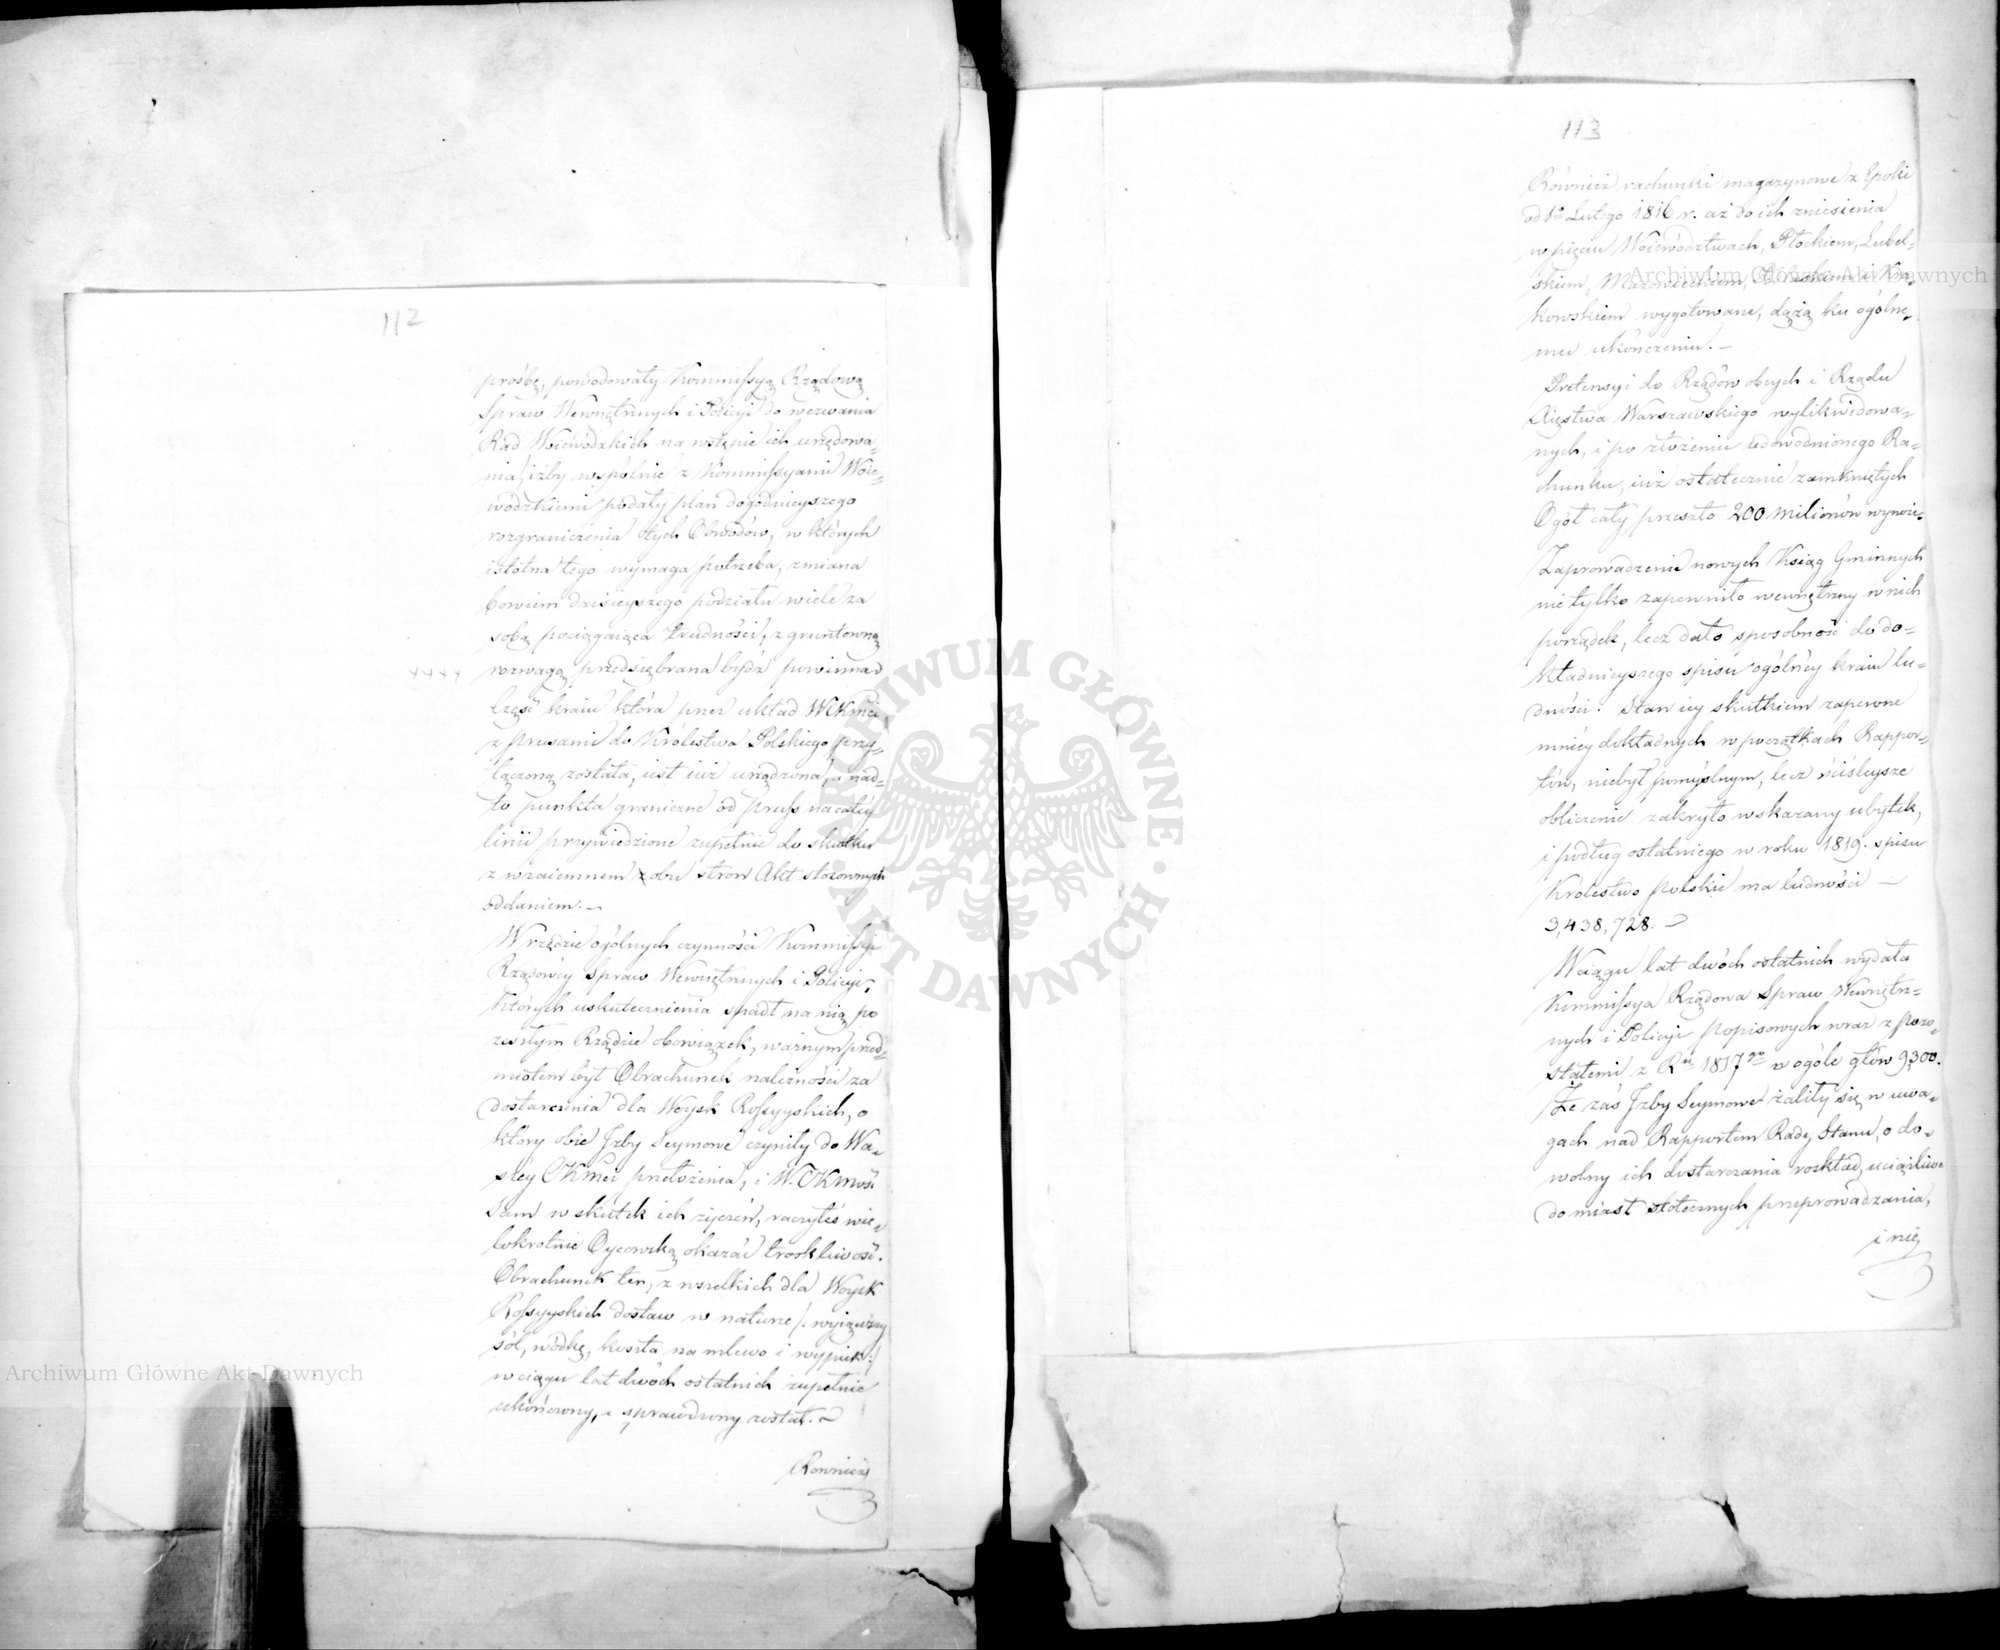 112
prośbę, powodowały Kommissyą Rządową
Spraw Wewnętrznych i Policyi do wezwania
Rad Woiewódzkich na wstępie ich urzędowa=
nia, iżby wspólnie z Kommissyami Woie=
wódzkiemi podały plan dogodnieyszego
rozgraniczenia tych Obwodów, w których
istotna tego wymaga potrzeba, zmiana
bowiem dzisieyszego podziału wiele za
sobą pociągaiąca trudności, z gruntowną
rozwagą przedsiębrana bydź powinna
Część kraiu która przez układ WCKMci
z Prusami do Królestwa Polskiego przy=
łączoną została, iest iuż urządzona, a nad=
to punkta graniczne od Pruss na całéy
linii przywiedzione zupełnie do skutku
z wzaiemnem z obu stron Akt stosownych
oddaniem.—
W rzędzie ogólnych czynności Kommissyi
Rządowéy Spraw Wewnętrznych i Policyi,
których uskutecznienia spadł na nią po
zeszłym Rządzie obowiązek, ważnym przed=
miotem był Obrachunek należności za
dostarczenia dla Woysk Rossyyskich, o
który obie Izby Seymowe czyniły do Wa=
széy CKMci przełożenia, i W. CKMość
sam w skutek ich życzeń, raczyłeś wie=
lokrotnie Oycowską okazać troskliwość.
Obrachunek ten, z wszelkich dla Woysk
Rossyyskich dostaw w naturze /: wyiąwszy
sól, wódkę, koszta na mlewo i wypiek :/
w ciągu lat dwóch ostatnich zupełnie
ukończony, i sprawdzony został.—
Rownież
113
Również rachunki magazynowe z Epoki
od 1go Lutego 1816 r. aż do ich zniesienia
w pięciu Woiewództwach, Płockiem, Lubel=
skiem, Mazowieckiem, i Kra=
kowskiem wygotowane, dążą ku ogólne=
mu ukończeniu.—
Pretensyi do Rządów obcych i Rządu
Xięstwa Warszawskiego wylikwidowa=
nych, i po złożeniu udowodnionego Ra=
chunku, iuż ostatecznie zamkniętych
Ogół cały przeszło 200 milionów wynosi.
Zaprowadzenie nowych Ksiąg Gminnych
nie tylko zapewniło wewnętrzny w nich
porządek, lecz dało sposobność do do=
kładnieyszego spisu ogólnéy kraiu lu=
dności. Stan iey skutkiem zapewne
mniéy dokładnych w początkach Rappor=
tów, niebył pomyślnym, lecz ściśleysze
obliczenie zakryło wskazany ubytek,
i podług ostatniego w roku 1819. spisu
Królestwo polskie ma ludności —
3,438,728.—
W ciągu lat dwóch ostatnich wydała
Kommissya Rządowa Spraw Wewnętrz=
nych i Policyi popisowych wraz z pozo=
stałemi z Rku 1817go w ogóle głów 9,300.
Że zaś Izby Seymowe żaliły się w uwa=
gach nad Rapportem Rady Stanu, o do=
wolny ich dostarczania rozkład, uciążliwe
do miast stołecznych przeprowadzania,
i nie
Archiwum Główne Akt Dawnych
Archiwum Główne Akt Dawnych
ARCHIWUM GŁÓWNE · AKT DAWNYCH ·